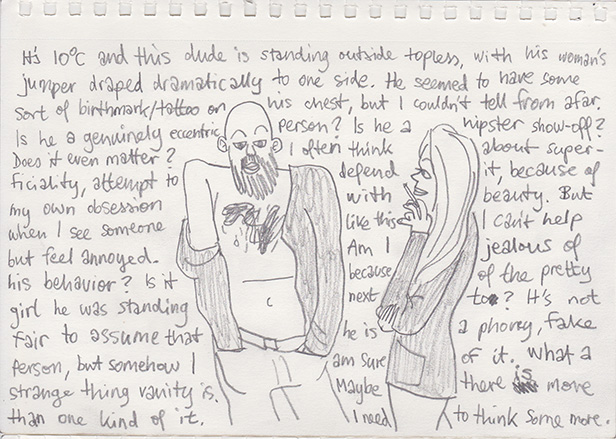 It's 10°C and this dude is standing outside topless, with his woman's
jumper draped dramatically to one side. He seemed to have some
sort of birthmark/tattoo on his chest, but I couldn't tell from afar.
Is he a genuinely eccentric person? Is he a hipster show-off?
Does it even matter? I often think about super-
ficiality, attempt to defend it, because of
my own obsession with beauty. But
when I see someone like this I can't help
but feel annoyed. Am I jealous of
his behavior? Is it because of the pretty
girl he was standing next to? It's not
fair to assume that he is a phony, fake
person, but somehow I am sure of it. What a
strange thing vanity is. Maybe there is more
than one kind of it. I need to think some more.